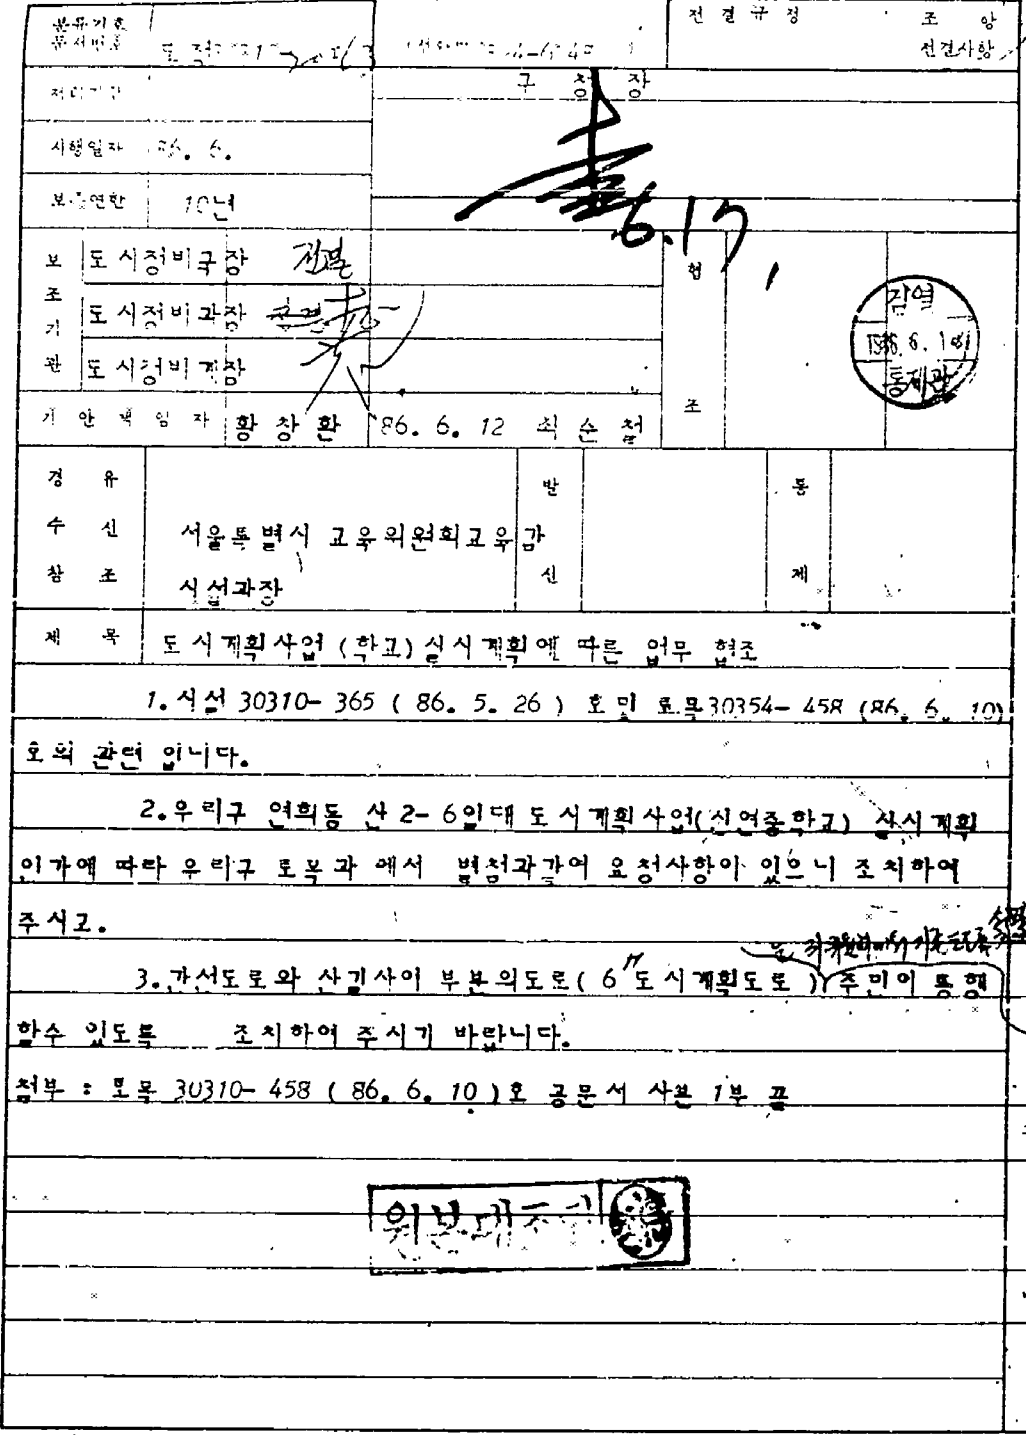 분류기호
문서번호
전결규정 조 항
전결사항
처리기간
구 청 장
시행일자 86. 6.
6.17,
보존연한 10년
보조기관
도시정비국장 전결
협조
도시정비과장
검열
1986. 6. 18
통제관
도시정비계장
기안책임자 황창환 86. 6. 12 최순철
경유
발신
통제
수신 서울특별시 교육위원회교육감
참조 시설과장
제목 도시계획사업 (학교) 실시계획에 따른 업무 협조
1. 시설 30310-365 ( 86. 5. 26 ) 호 및 토목30354-458 (86. 6. 10)
호의 관련 입니다.
2. 우리구 연희동 산 2-6일대 도시계획사업(신연중학교) 실시계획
인가에 따라 우리구 토목과 에서 별첨과같이 요청사항이 있으니 조치하여
주시고.
3. 간선도로와 산길사이 부분의도로( 6M 도시계획도로 ) 주민이 통행
할수 있도록 조치하여 주시기 바랍니다.
첨부 : 토목 30310-458 ( 86. 6. 10 )호 공문서 사본 1부 끝
원본대조필